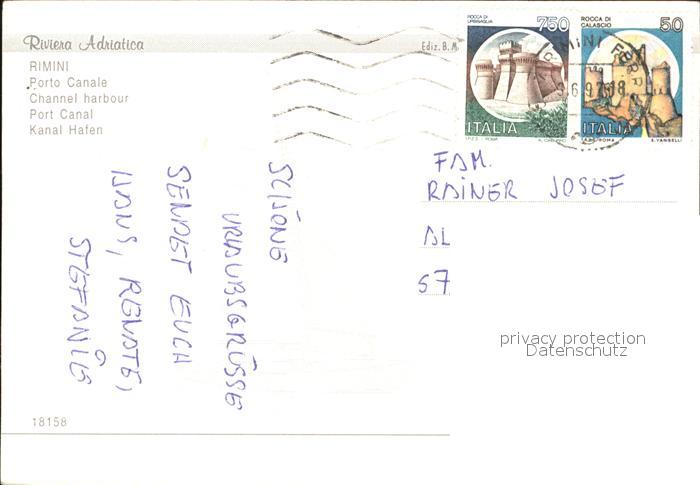 Riviera Adriatica
Ediz. B. M
RIMINI
Porto Canale
Channel harbour
Port Canal
Kanal Hafen
SCHÖNE
URLAUBSGRÜSSE
SENDET EUCH
HANS, RENATE,
STEFANIE
18158
ROCCA DI
URBISAGLIA
750
ITALIA
I.P.Z.S. - ROMA
ROCCA DI
CALASCIO
50
ITALIA
E. VANGELLI
RIMINI
FAM.
RAINER JOSEF
AL
57
privacy protection
Datenschutz